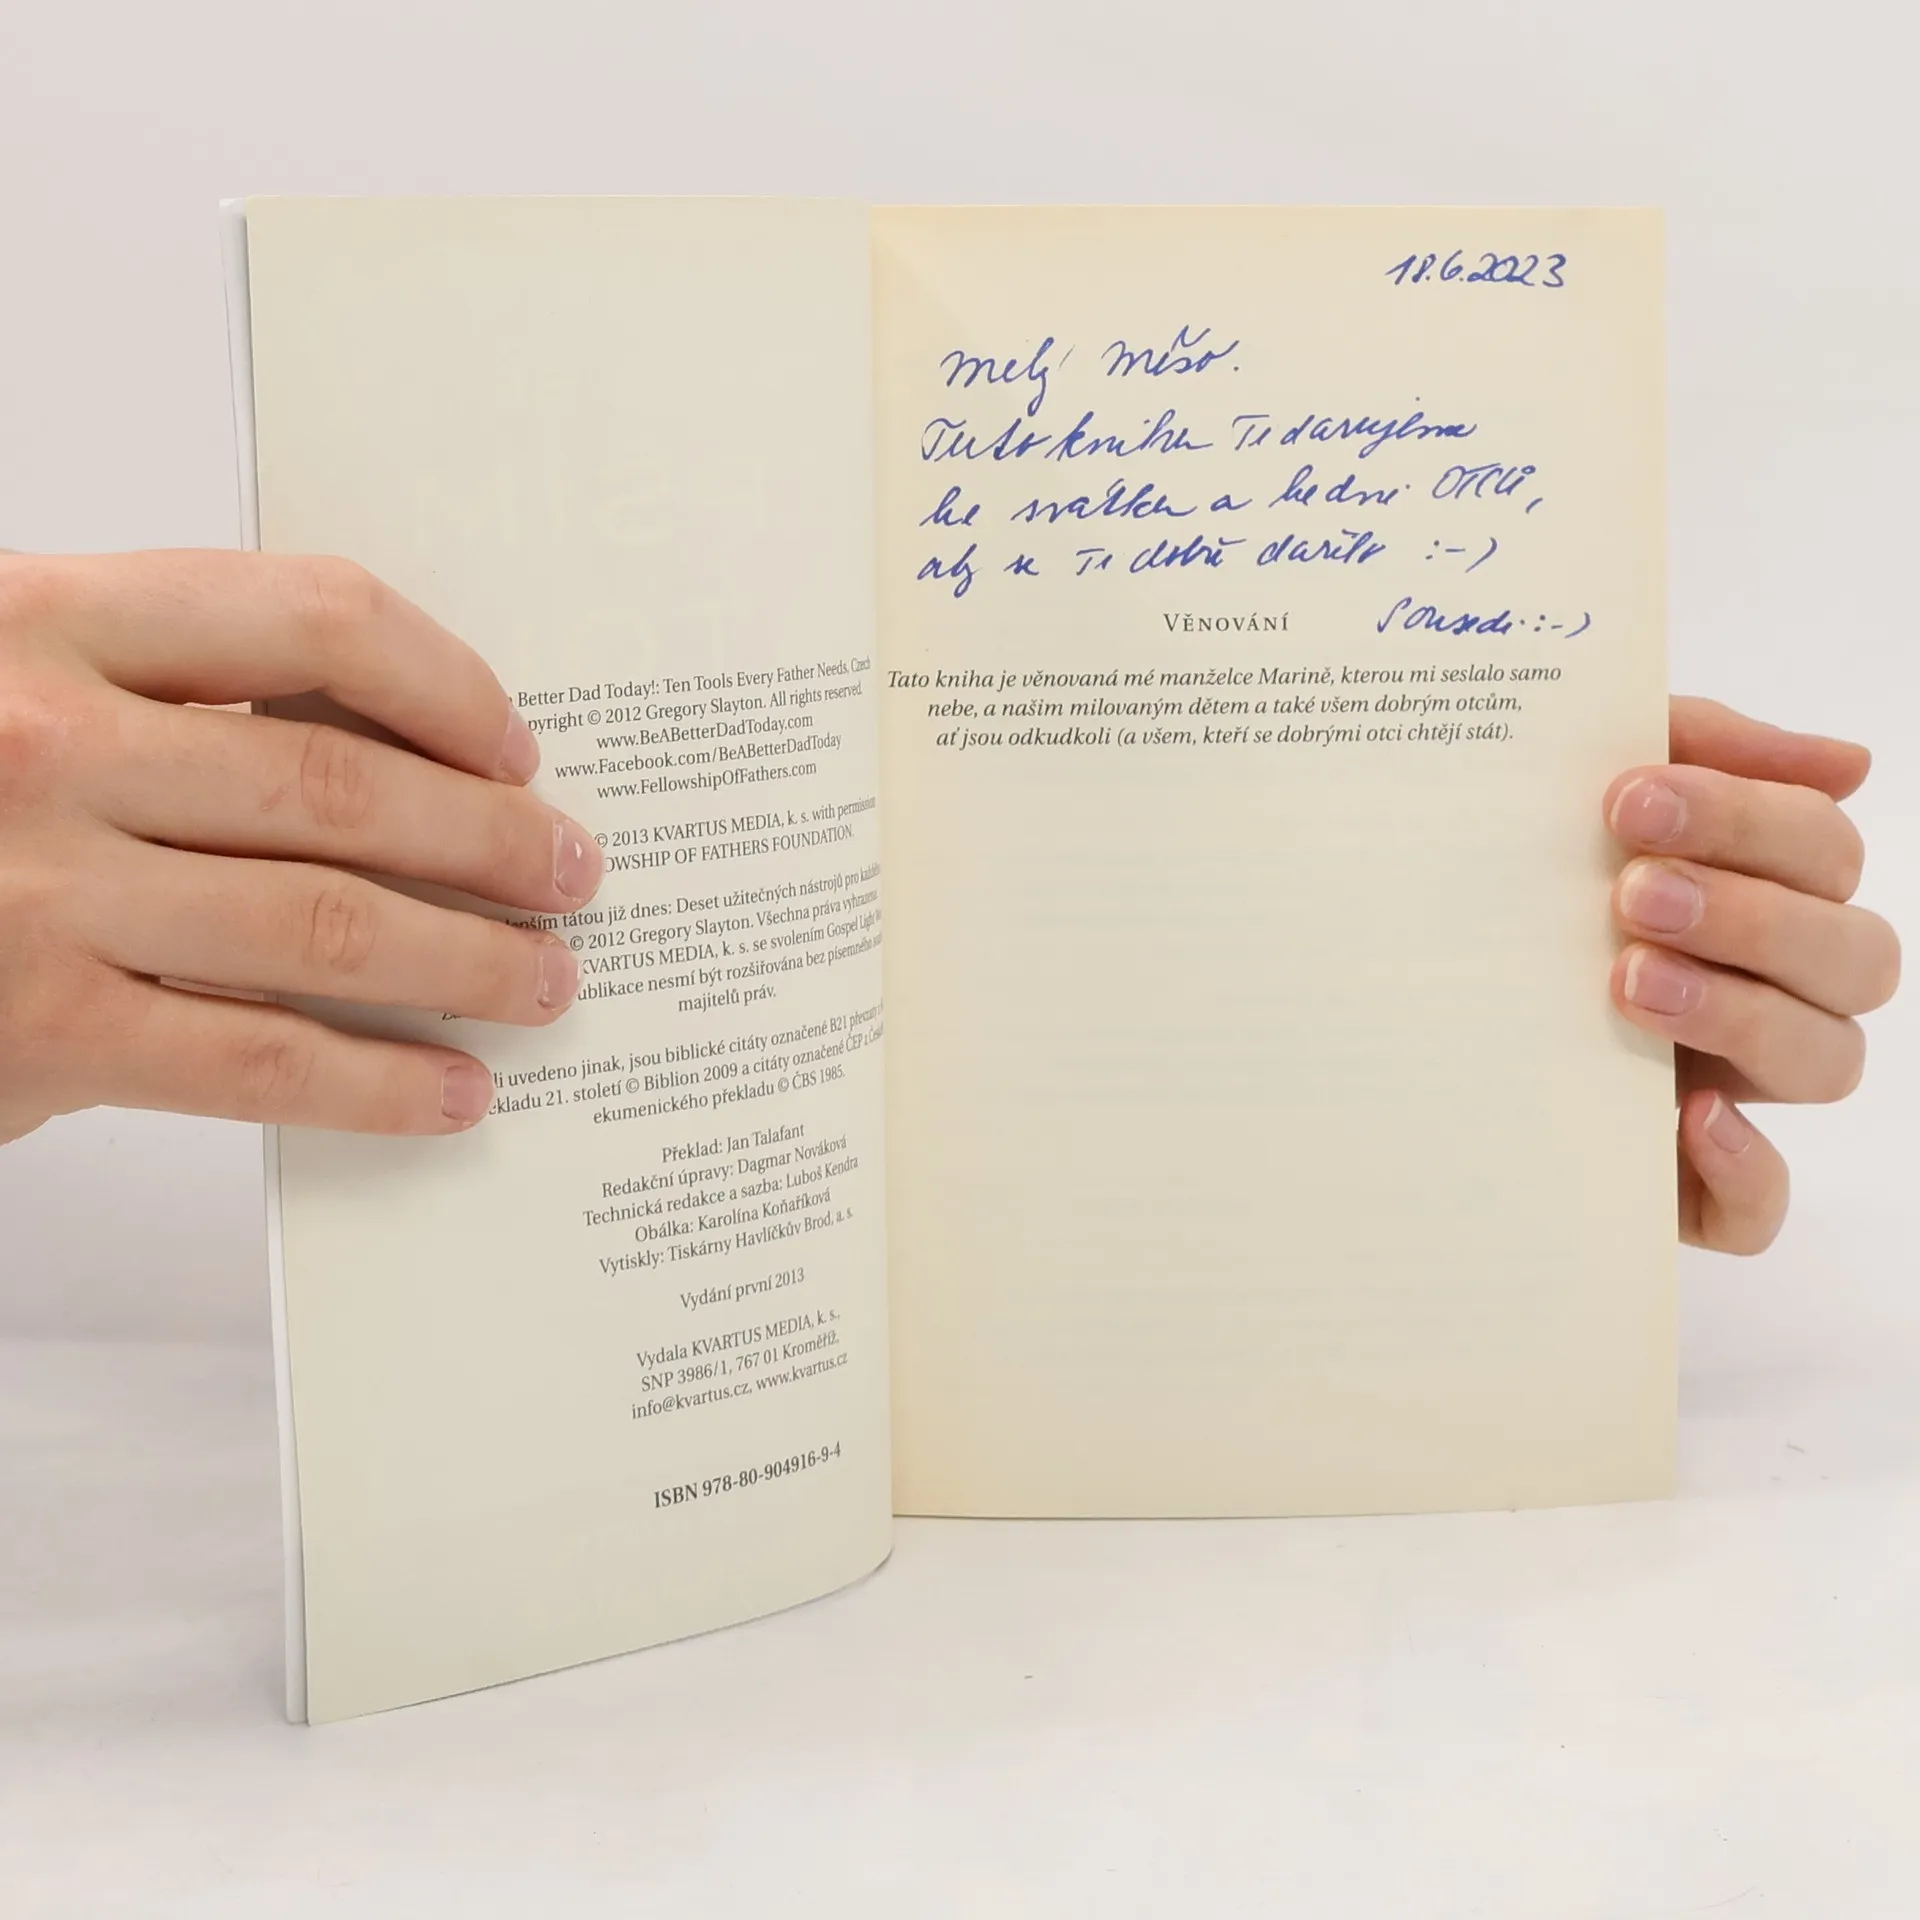 Better Dad Today!: Ten Tools Every Father Needs, Czech
pyright © 2012 Gregory Slayton. All rights reserved
www.BeABetterDadToday.com
www.Facebook.com/BeABetterDadToday
www.FellowshipOfFathers.com
© 2013 KVARTUS MEDIA, k. s. with permission
OWSHIP OF FATHERS FOUNDATION.
lepším tátou již dnes: Deset užitečných nástrojů pro každého
© 2012 Gregory Slayton. Všechna práva vyhrazena.
KVARTUS MEDIA, k. s. se svolením Gospel Light
ublikace nesmí být rozšiřována bez písemného
majitelů práv.
li uvedeno jinak, jsou biblické citáty označené B21 převzaty z
ekladu 21. století © Biblion 2009 a citáty označené ČEP z
ekumenického překladu © ČBS 1985.
Překlad: Jan Talafant
Redakční úpravy: Dagmar Nováková
Technická redakce a sazba: Luboš Kendra
Obálka: Karolína Koňaříková
Vytiskly: Tiskárny Havlíčkův Brod, a. s.
Vydání první 2013
Vydala KVARTUS MEDIA, k. s.,
SNP 3986/1, 767 01 Kroměříž,
info@kvartus.cz, www.kvartus.cz
ISBN 978-80-904916-9-4
18.6.2023
Milý Míšo.
Tuto knihu Ti darujeme
ke svátku a ke dni OTCŮ,
aby se Ti dobře dařilo :-)
Sousedi :-)
VĚNOVÁNÍ
Tato kniha je věnovaná mé manželce Marině, kterou mi seslalo samo
nebe, a našim milovaným dětem a také všem dobrým otcům,
ať jsou odkudkoli (a všem, kteří se dobrými otci chtějí stát).